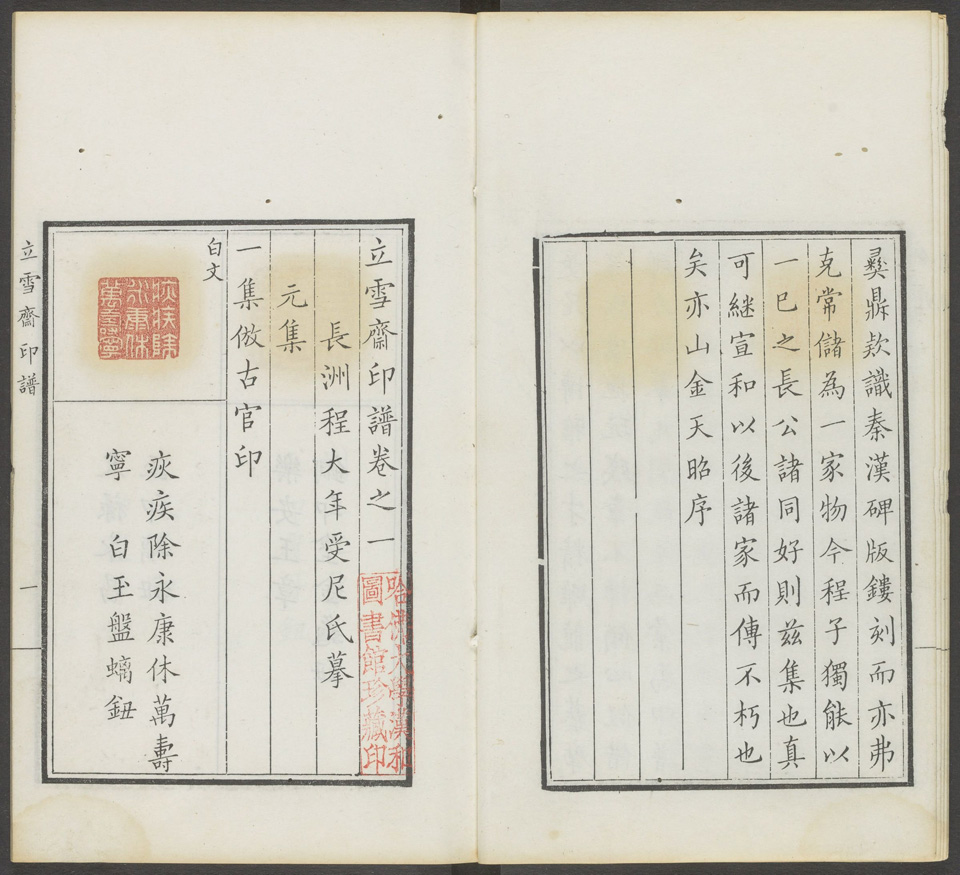 彝鼎欵識秦漢碑版鏤刻而亦弗
克常儲為一家物今程子獨能以
一已之長公諸同好則兹集也真
可継宣和以後諸家而傳不朽也
矣亦山金天昭序
立雪齋印譜卷之一
長洲程大年受尼氏摹
元集
一集倣古官印
白文
疢疾除永康休萬壽
寧 白玉盤螭鈕
疢疾除
永康休
萬壽寧
哈佛大學漢和
圖書館珍藏印
立雪齋印譜
一